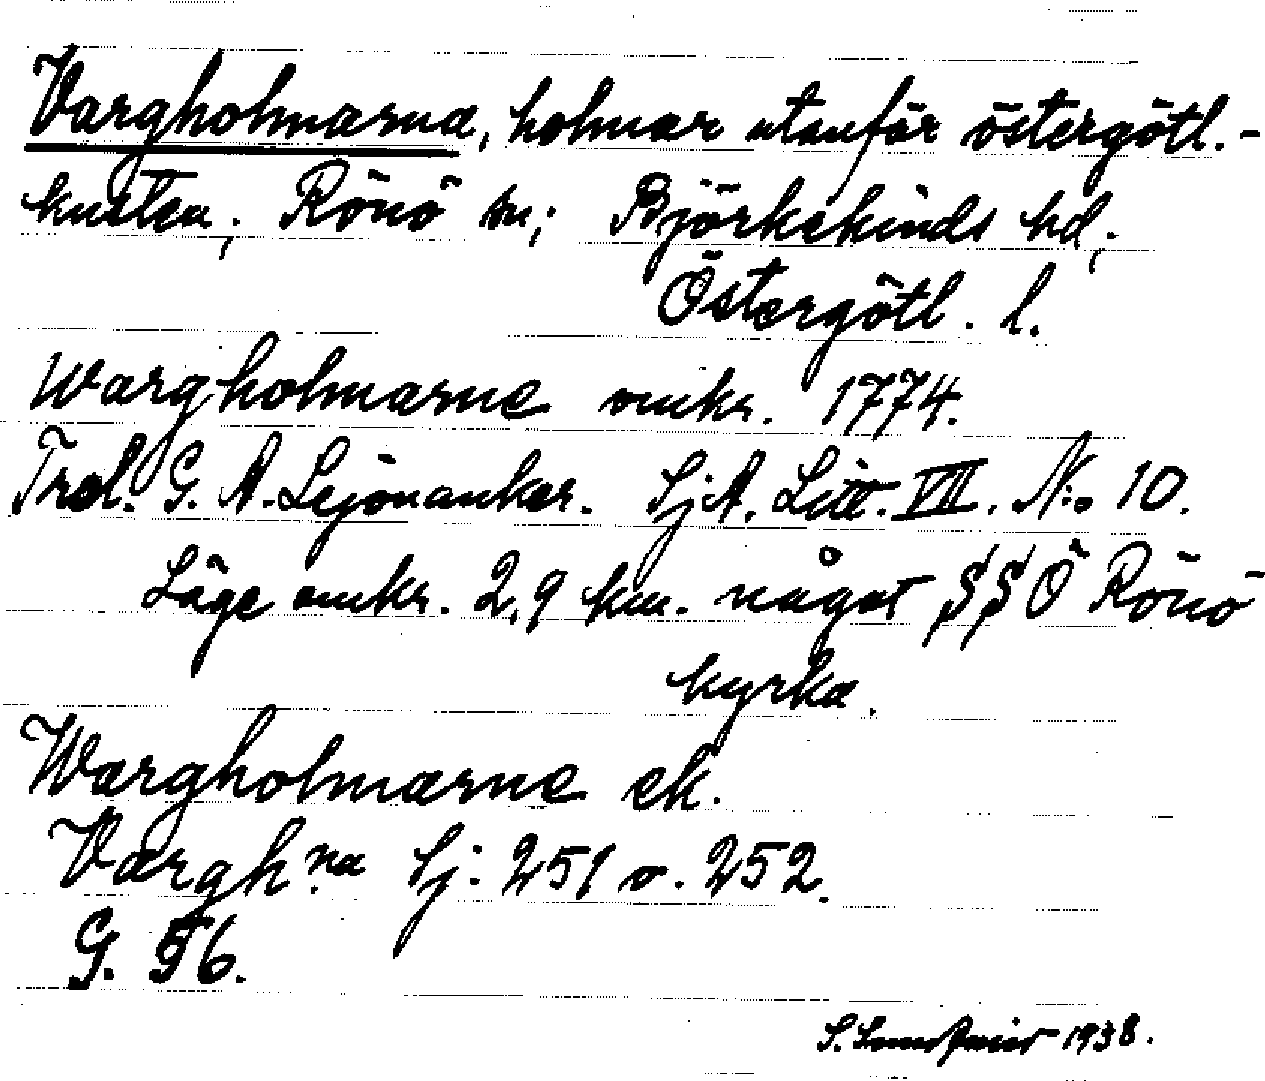 Vargholmarna, holmar utanför östergötl.-
kusten; Rönö sn; Björkekinds hd;
Östergötl. l.
Wargholmarne omkr. 1774.
Trol. G. A. Lejonanker. SjA. Litt. VII. N:o 10.
Läge omkr. 2,9 km. något SSÖ Rönö
kyrka.
Wargholmarne ek.
Vargh:na Sj: 251 o. 252.
G. 56.
S. 1938.